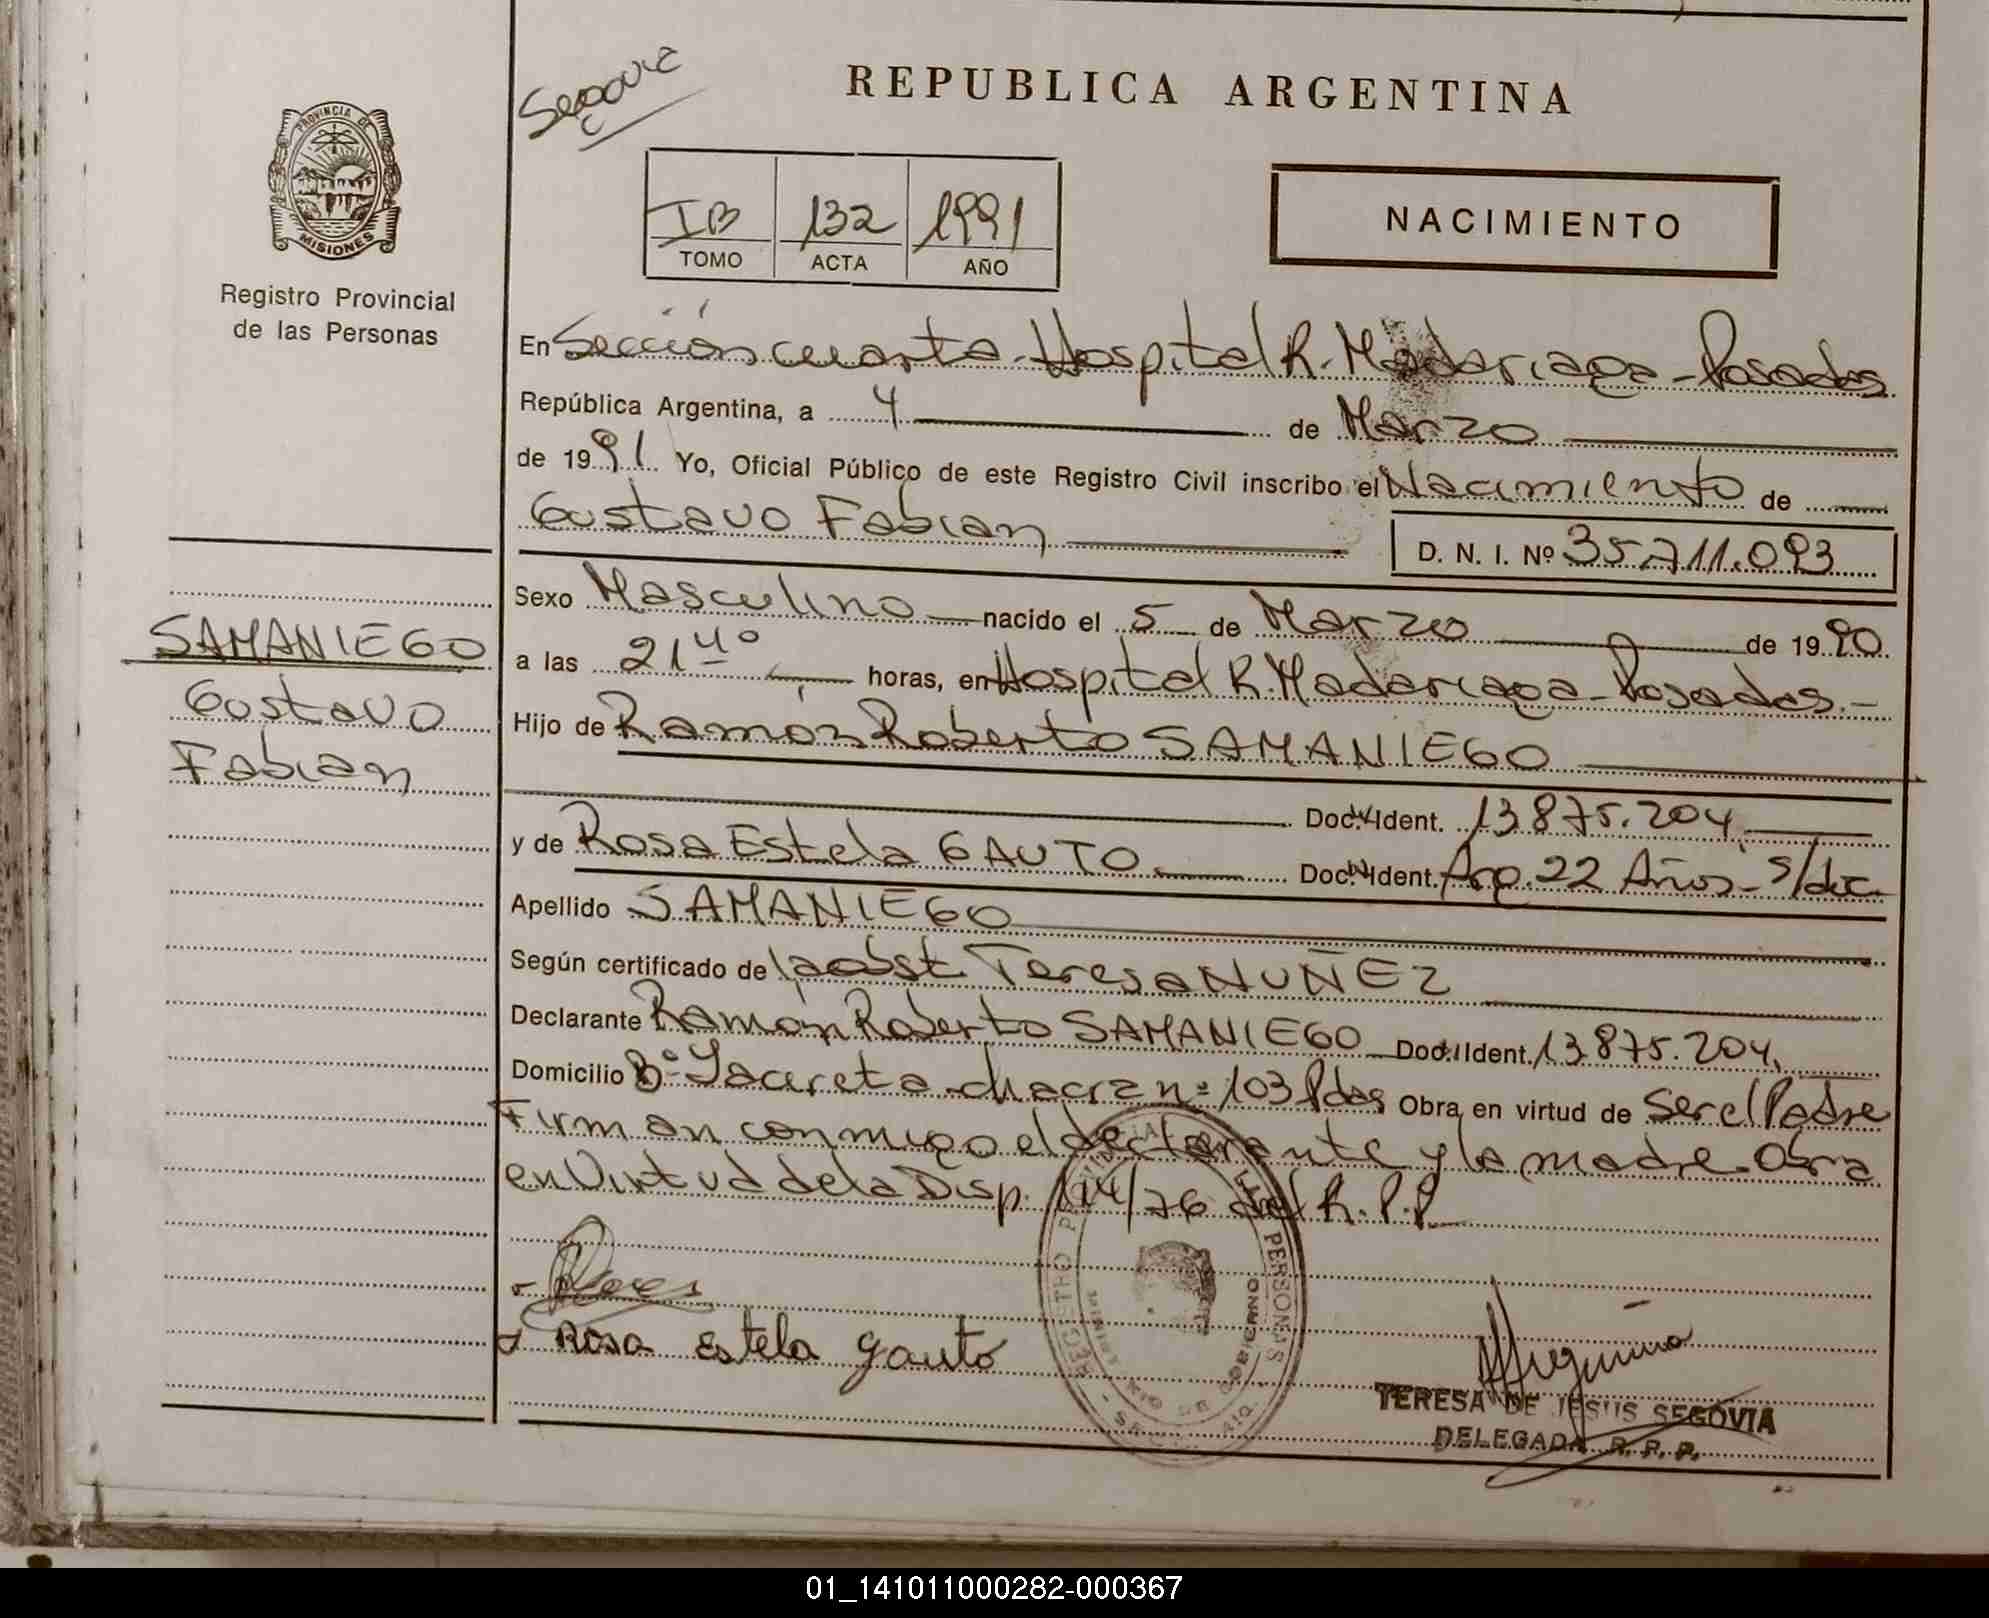 Segovia
REPUBLICA ARGENTINA
PROVINCIA DE
MISIONES
Registro Provincial
de las Personas
IB 132 1991
TOMO ACTA AÑO
NACIMIENTO
En Sección cuarta - Hospital R. Madariaga - Posadas
República Argentina, a 4 de Marzo
de 1991 Yo, Oficial Público de este Registro Civil inscribo el Nacimiento de
Gustavo Fabian
D. N. I. Nº 35.711.093
Sexo Masculino nacido el 5 de Marzo de 1990
a las 21 40 horas, en Hospital R. Madariaga - Posadas.-
Hijo de Ramón Roberto SAMANIEGO
Doc. Ident. 13.875.204
y de Rosa Estela GAUTO Doc. Ident. Arg. 22 Años - s/doc.
Apellido SAMANIEGO
Según certificado de la obst. Teresa NUÑEZ
Declarante Ramón Roberto SAMANIEGO Doc. Ident. 13.875.204
Domicilio Bº Yacireta - chacra nº 103 Pdas Obra en virtud de Ser el Padre
Firman conmigo el declarante y la madre. Obra
en Virtud de la Disp. /76 del R.P.P.
SAMANIEGO
Gustavo
Fabian
Rosa Estela Gauto
REGISTRO PERSONAS
MINISTERIO DE GOBIERNO
TERESA DE JESUS SEGOVIA
DELEGADA R. P. P.
01_141011000282-000367